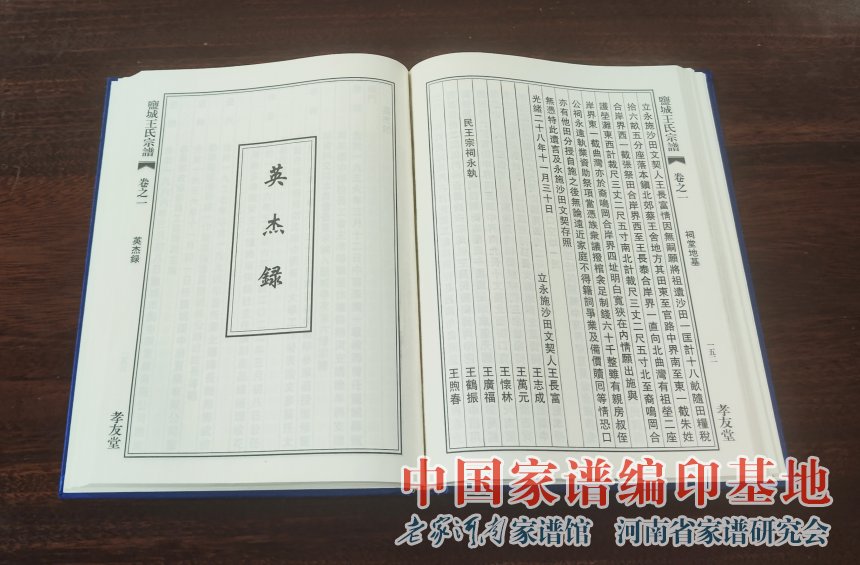 鹽城王氏宗譜
卷之一
祠堂地基
一五二
孝友堂
立永施沙田文契人王長富情因無嗣願將祖遺沙田一匡計十八畝隨田糧稅
拾六畝五分座落本鎮北郊蔡王舍地方其田東至官路中界南至東一截朱姓
合岸界西一截張祭田合岸界西至王長泰合岸界一直向北曲灣有祖塋二座
護塋灘東西計裁尺三丈二尺五寸南北計裁尺三丈二尺五寸北至裔鳴岡合
岸界東一截曲灣亦於裔鳴岡合岸界四址明白寬狹在內情願出施與
公祠永遠執業資助祭項當憑族衆議撥棺衾足制錢六十千整雖有親房叔侄
亦有他田分授自施之後無論遠近家庭不得籍詞爭業及備價贖回等情恐口
無憑特此遺言及永施沙田文契存照
光緒二十八年十一月三十日
立永施沙田文契人王長富
王志成
王萬元
民王宗祠永執
王懷林
王廣福
王鶴振
王煦春
英杰録
鹽城王氏宗譜
卷之一
英杰録
孝友堂
中国家谱编印基地
老家河南家谱馆 河南省家谱研究会